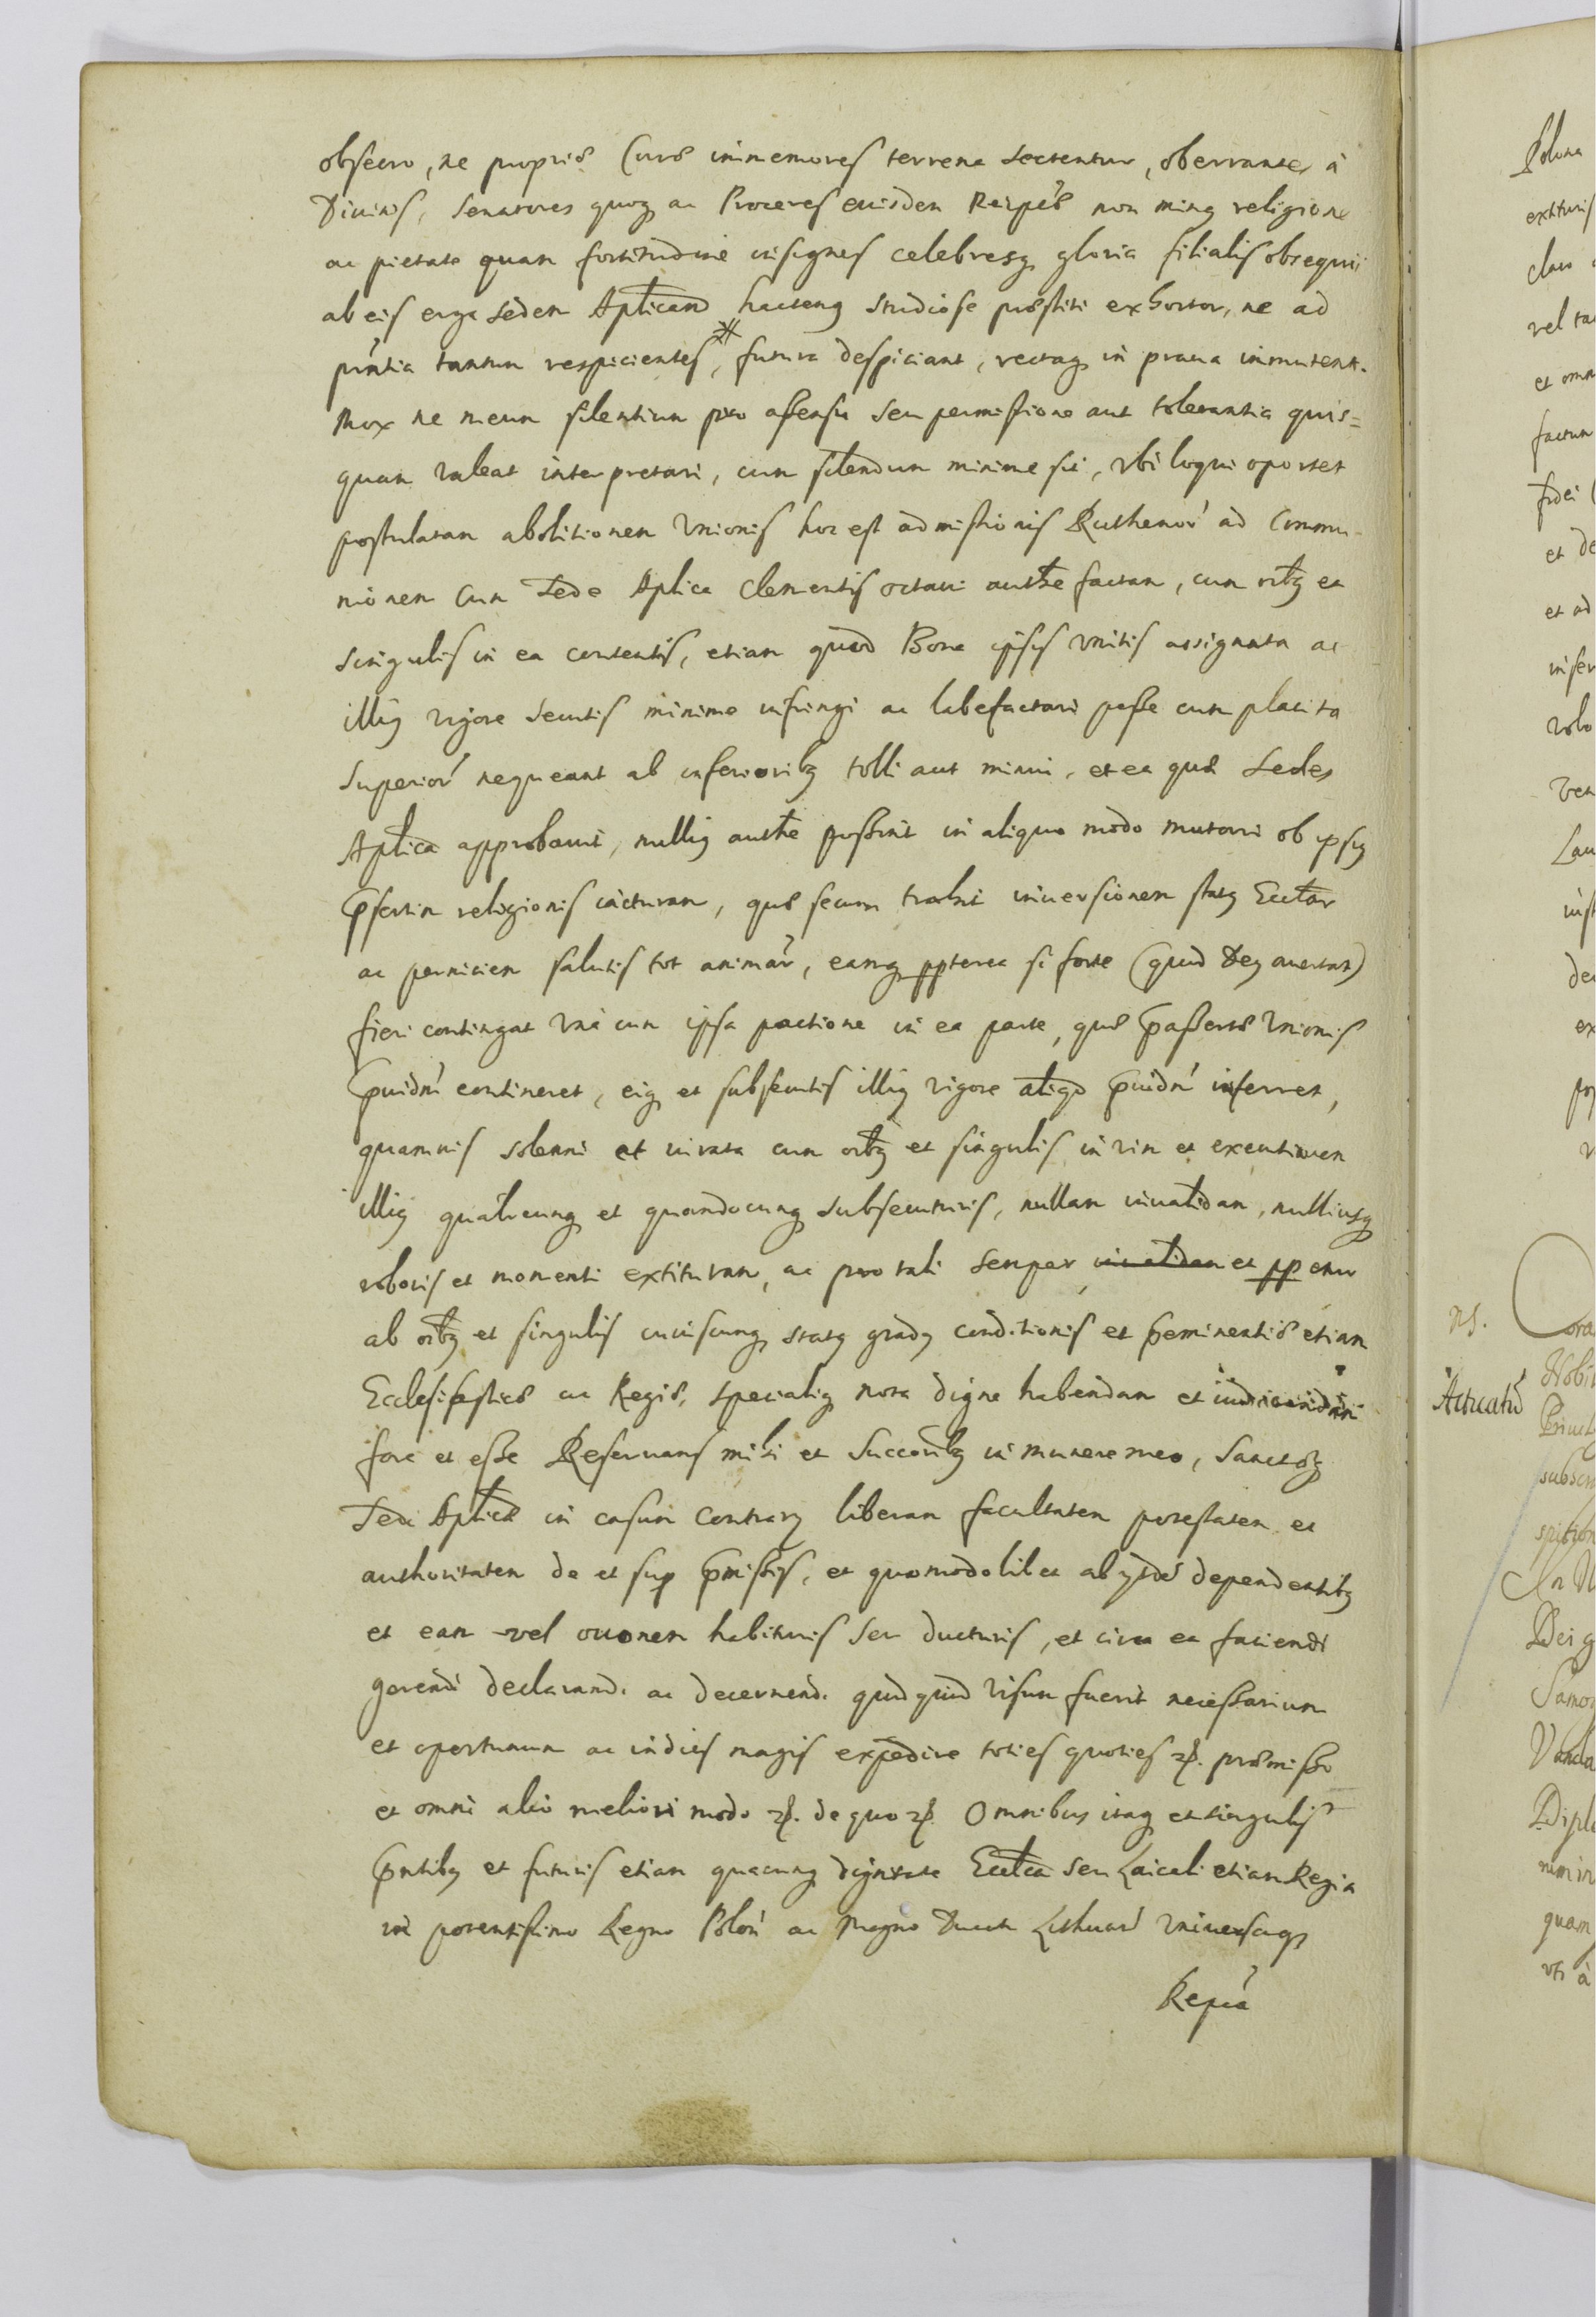 obsecro, ne propriæ Curæ immemores terrena sectentur, oberrantes à
Diuinis, Senatores quoq ac Proceres eiusdem Reipub non minq religione
ac pietate quam fortitudine insignes celebresq gloria filialis obsequii
ab eis erga sedem Aplicam hactenq studiose præstiti exhortor, ne ad
pñtia tantum respicientes, futura despiciant, rectaq in praua immutent.
Mox ne meum silentium pro assensu seu permissione aut tolerantia quis=
quam valeat interpretari, cum silendum minime sit, vbi loqui oportet
postulatam abolitionem Vnionis hoc est admissionis Ruthenor ad Commu-
nionem cum Sede Aplica Clementis octaui authe factam, cum oibq et
singulis in ea contentis, etiam quoad Bona ipsis vnitis assignata ac
illiq vigore secutis minime infringi ac labefactari posse cum placita
Superior nequeant ab inferioribq tolli aut minui, et ea quæ Sedes
Aplica approbauit, nulliq authe possint in aliquo modo mutari ob ipsiq
psertim religionis iacturam, quæ secum trahit inuersionem statq Ecclar
ac perniciem salutis tot animar, eamq ppterea si forte (quod Deq auertat)
fieri contingat vna cum ipsa pactione in ea parte, quæ passertæ Vnionis
pʳiudm contineret, eiq et subsecutis illiq vigore aliqd pʳiudm inferret,
quamuis solenni et iurata cum oibq et singulis in vim et executionem
illiq qualitercunq et quandocunq subsecuturis, nullam inualidam, nulliusq
roboris et momenti extituram, ac pro tali semper inualidam et pp
ab oibq et singulis cuiuscunq statq gradq conditionis et pʳeminentiæ etiam
Ecclesiasticæ ac Regiæ, specialiq nota digne habendam et iudicandam
fore et esse Reseruans mihi et Successoribq in munere meo, Sanctæq
Sedi Aplicæ in casum contrariq liberam facultatem potestatem et
authoritatem de et sup pʳmissis, et quomodolibet ab ysde dependentibq
et eam vel habituris seu ducturis, et circa ea faciendi
gerendi declarandi ac decernendi quidquid visum fuerit necessarium
et oportunum ac indies magis expedire toties quoties &. præmisso
et omni alio meliori modo &. de quo &. Omnibus itaq et singulis
pʳntibq et futuris etiam quacunq dignitate Ecclca seu Laicali etiam Regia
in potentissimo Regno Polon ac Magno Ducatu Lithuan vniuersaq
Repca
ns.
Acticatu
Polona
extituris
claro
vel ta
et omn
factum
fidei
et de
et ad
infer
robo
ver
Lau
inst
de
ex
Cora
Nobi
subscr
In N
Dei g
Samog
Vanda
Diplo
quam
vti à